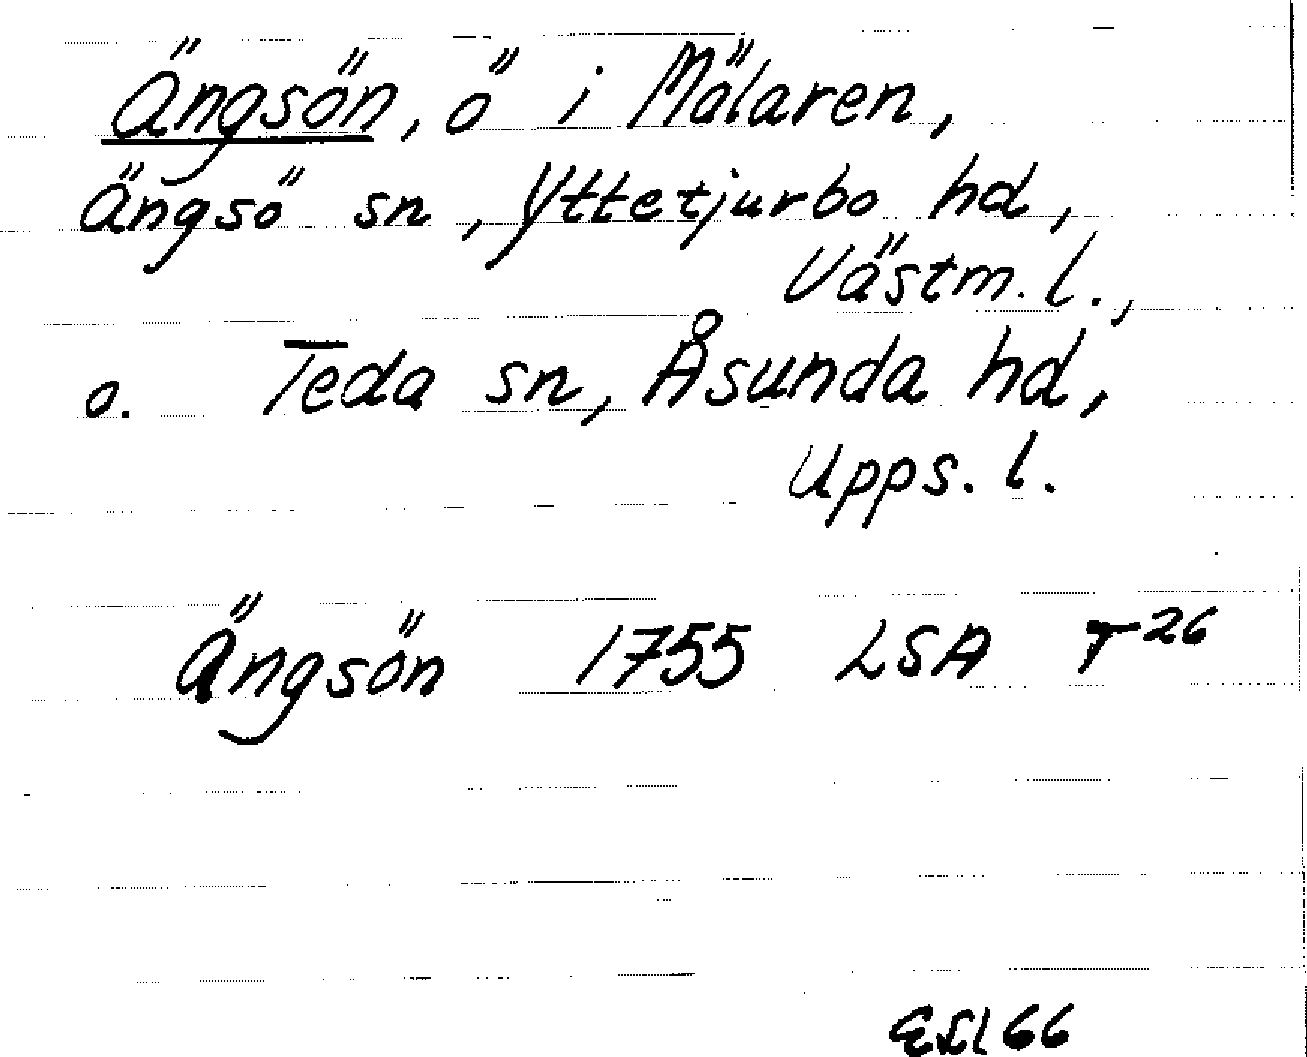 Ängsön, ö i Mälaren,
Ängsö sn, Yttetjurbo hd,
Västm. l.,
o. Teda sn, Åsunda hd,
Upps. l.
Ängsön 1755 LSA T 26
66